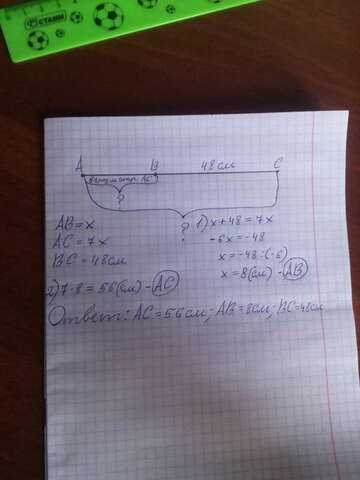 СТАММ
A B 48см C
AC
?
?
AB = x
AC = 7x
BC = 48см
1) x + 48 = 7x
-6x = -48
x = -48 : (-6)
x = 8 (см) - AB
2) 7 · 8 = 56 (см) - AC
Ответ: AC = 56 см; AB = 8см; BC = 48см